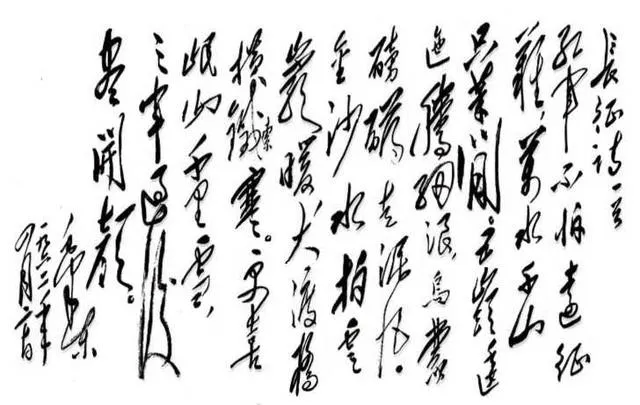 長征詩一首
紅軍不怕遠征
難,萬水千山
只等閒。五嶺逶
迤騰細浪,烏蒙
磅礴走泥丸。
金沙水拍雲
崖暖,大渡橋
橫鐵索寒。更喜
岷山千里雪,
三軍過後
盡開顏。
毛澤東
一九六二年
四月二十日